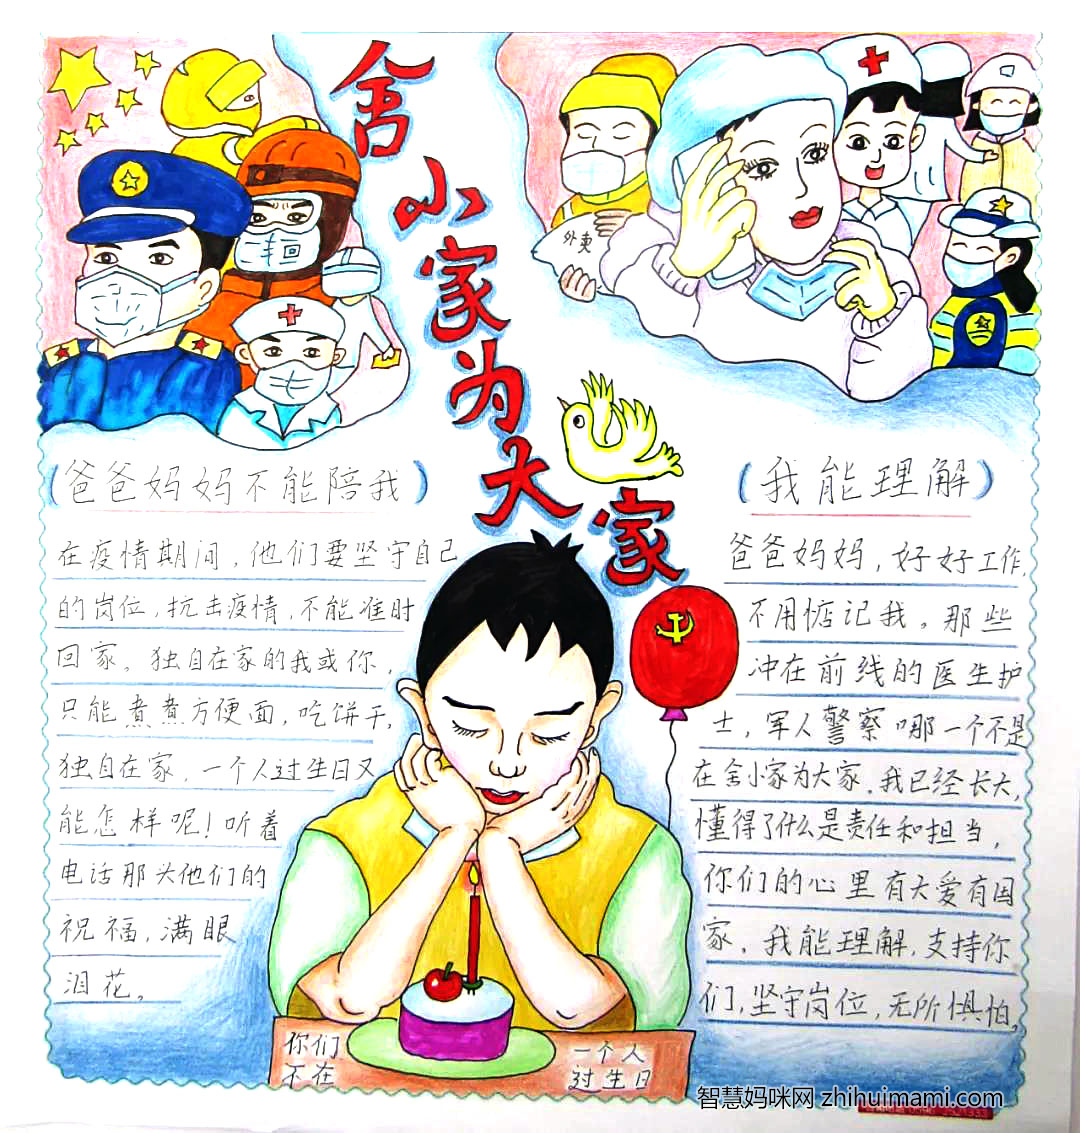 舍小家为大家
外卖
(爸爸妈妈不能陪我)
在疫情期间,他们要坚守自己
的岗位,抗击疫情,不能准时
回家。独自在家的我或你,
只能煮煮方便面,吃饼干,
独自在家,一个人过生日又
能怎样呢!听着
电话那头他们的
祝福,满眼
泪花。
(我能理解)
爸爸妈妈,好好工作,
不用惦记我。那些
冲在前线的医生护
士,军人警察哪一个不是
在舍小家为大家。我已经长大,
懂得了什么是责任和担当,
你们的心里有大爱有国
家。我能理解,支持你
们,坚守岗位,无所惧怕。
你们
不在
一个人
过生日
智慧妈咪网 zhihuimami.com